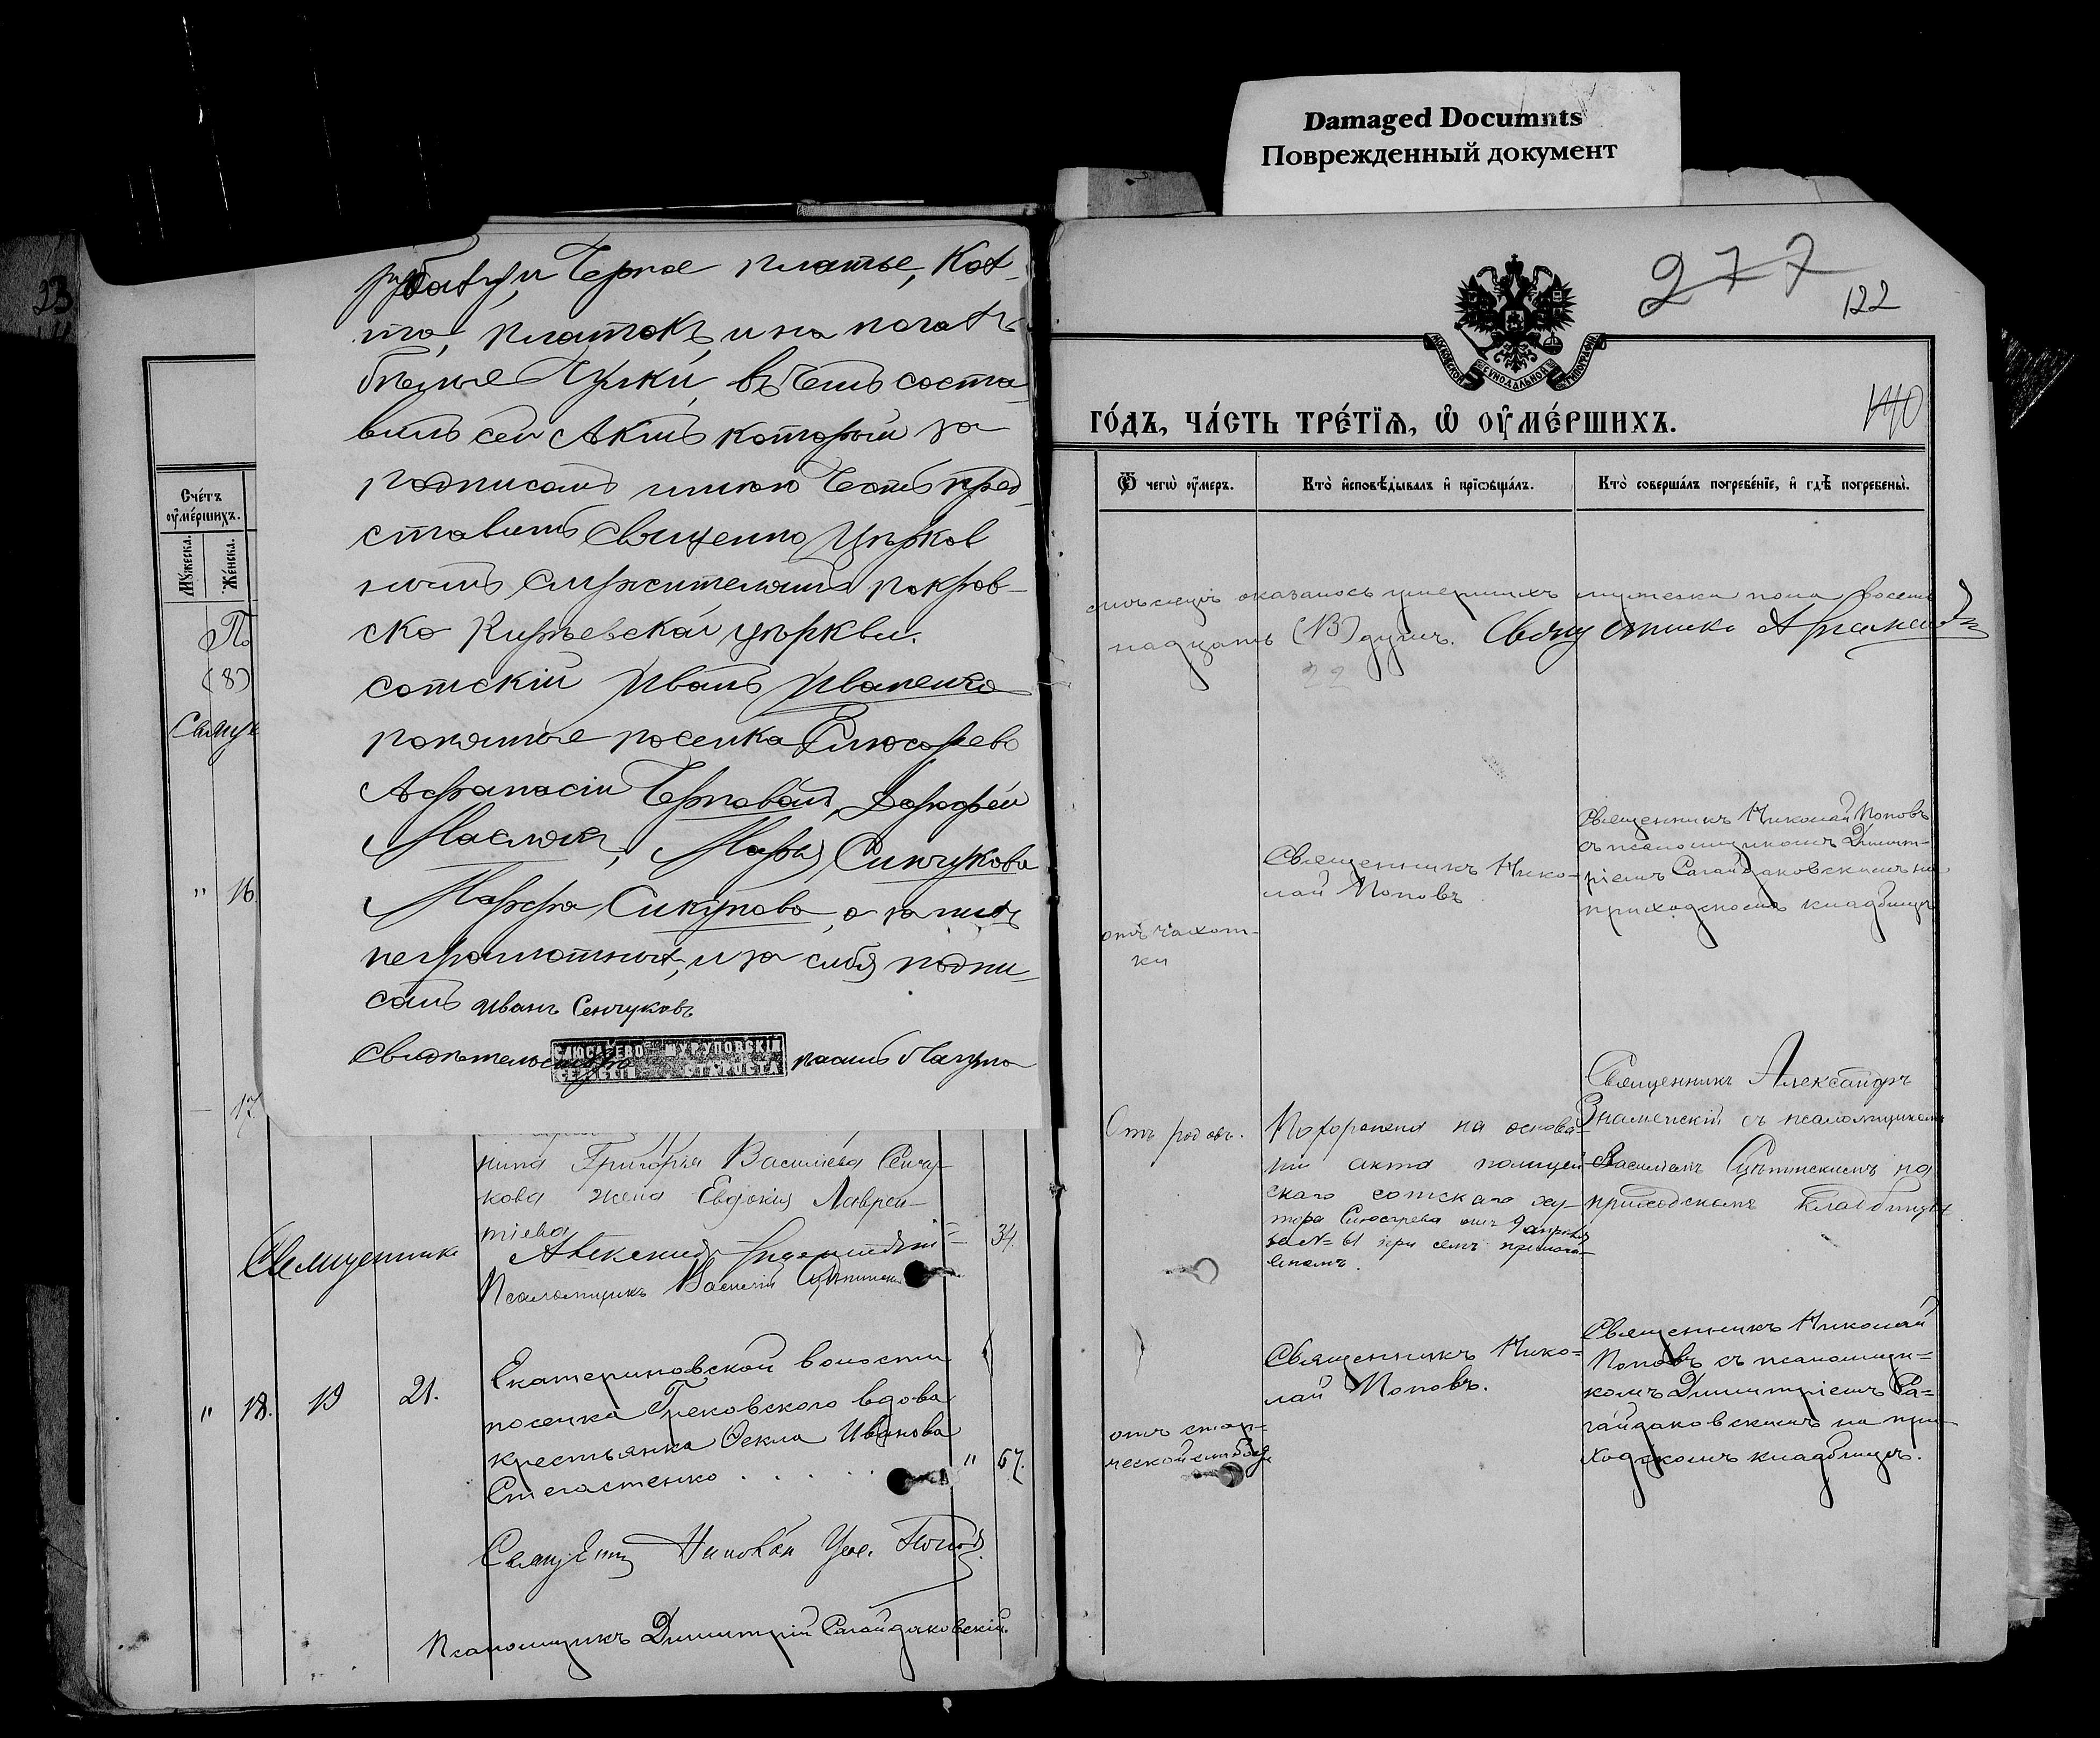 Damaged Documnts
Поврежденный документ
23
рубаху, и Черное платье, Коф-
та, платокъ, и на ногахъ
бѣлые Чулки, въ Чемъ соста-
вилъ сей Актъ который за
подписомъ имѣю Честь пред-
ставить Священно Църков
нымъ служителямъ покров-
ско Киръевской църкви.
сотскій Иванъ Иваненко
понятые поселка Слюсарево
Афанасій Черновой, Дорофей
Маслюкъ, Марья Синчукова
Марфа Сикунова, а за нихъ
неграмотныхъ, и за себя подпи-
салъ Иванъ Сенчуковъ
Свидѣтельствую
СЛЮСАРЕВО ШУРУПОВСКІЙ
СЕЛЬСКІЙ СТАРОСТА
Счéтъ
оу҆мéршихъ.
Мꙋ́жеска.
Жéнска.
По
(8)
Свящ
" 16.
17.
нина Григорія Васильева Сенчу-
кова жена Евдокія Лаврен-
тіева
34.
Священникъ Александръ Знаменскій
Псаломщикъ Василій
" 18. 19 21.
Екатериновской волости
поселка Грековского вдова
крестьянка Ѳекла Иванова
Стегастенко . . . . . " 67.
Священникъ Николай Попов
Псаломщикъ Димитрій Сагайдаковскій.
277
122
140
МОСКОВСКОЙ СѴНОДАЛЬНОЙ ТИПОГРАФІИ
ГО́ДЪ, ЧА́СТЬ ТРЕ́ТЇѦ, Ѽ ОУ҆МЕ́РШИХЪ.
Ѿ чегѡ̀ оу҆́меръ.
Кто̀ и҆сповѣ́дывалъ и҆ прїѡбща́лъ.
Кто̀ соверша́лъ погребе́нїе, и҆ гдѣ̀ погребены̀.
оказалось умершихъ мужеска пола восем
надцать (18) душъ. Священникъ
22
отъ чахот-
ки
Священникъ Нико-
лай Поповъ
Священникъ Николай Поповъ
съ псаломщикомъ Димит-
ріемъ Сагайдаковскимъ на
приходскомъ кладбищѣ
Отъ родовъ.
Похоронена на основа-
ніи акта полицей-
скаго сотскаго ху-
тора Слюсарева отъ 9 апрѣля
за № 61 при семъ прилага-
емомъ.
Священникъ Александръ
Знаменскій съ псаломщикомъ
Василіемъ на
приходскомъ кладбищѣ.
отъ стар-
ческой слабости
Священникъ Нико-
лай Поповъ.
Священникъ Николай
Поповъ съ псаломщи-
комъ Димитріемъ Са-
гайдаковскимъ на при-
ходскомъ кладбищѣ.